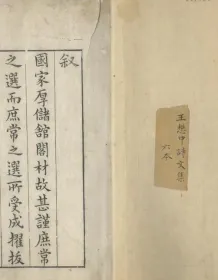 王懋中詩文集
六本
叙
國家厚儲舘閣材故甚謹庶常
之選而庶常之選所受成擢拔